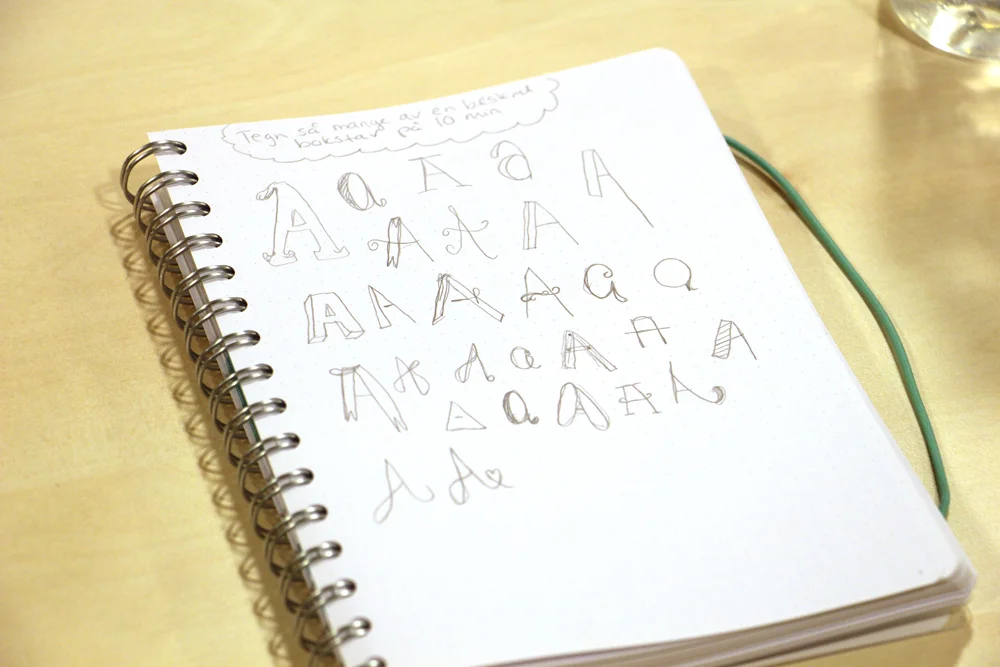 Tegn så mange av en beskret
bokstav på 10 min
A a A a A
A A A
A A A A G a
A A A a A A A
A a A A A
A A